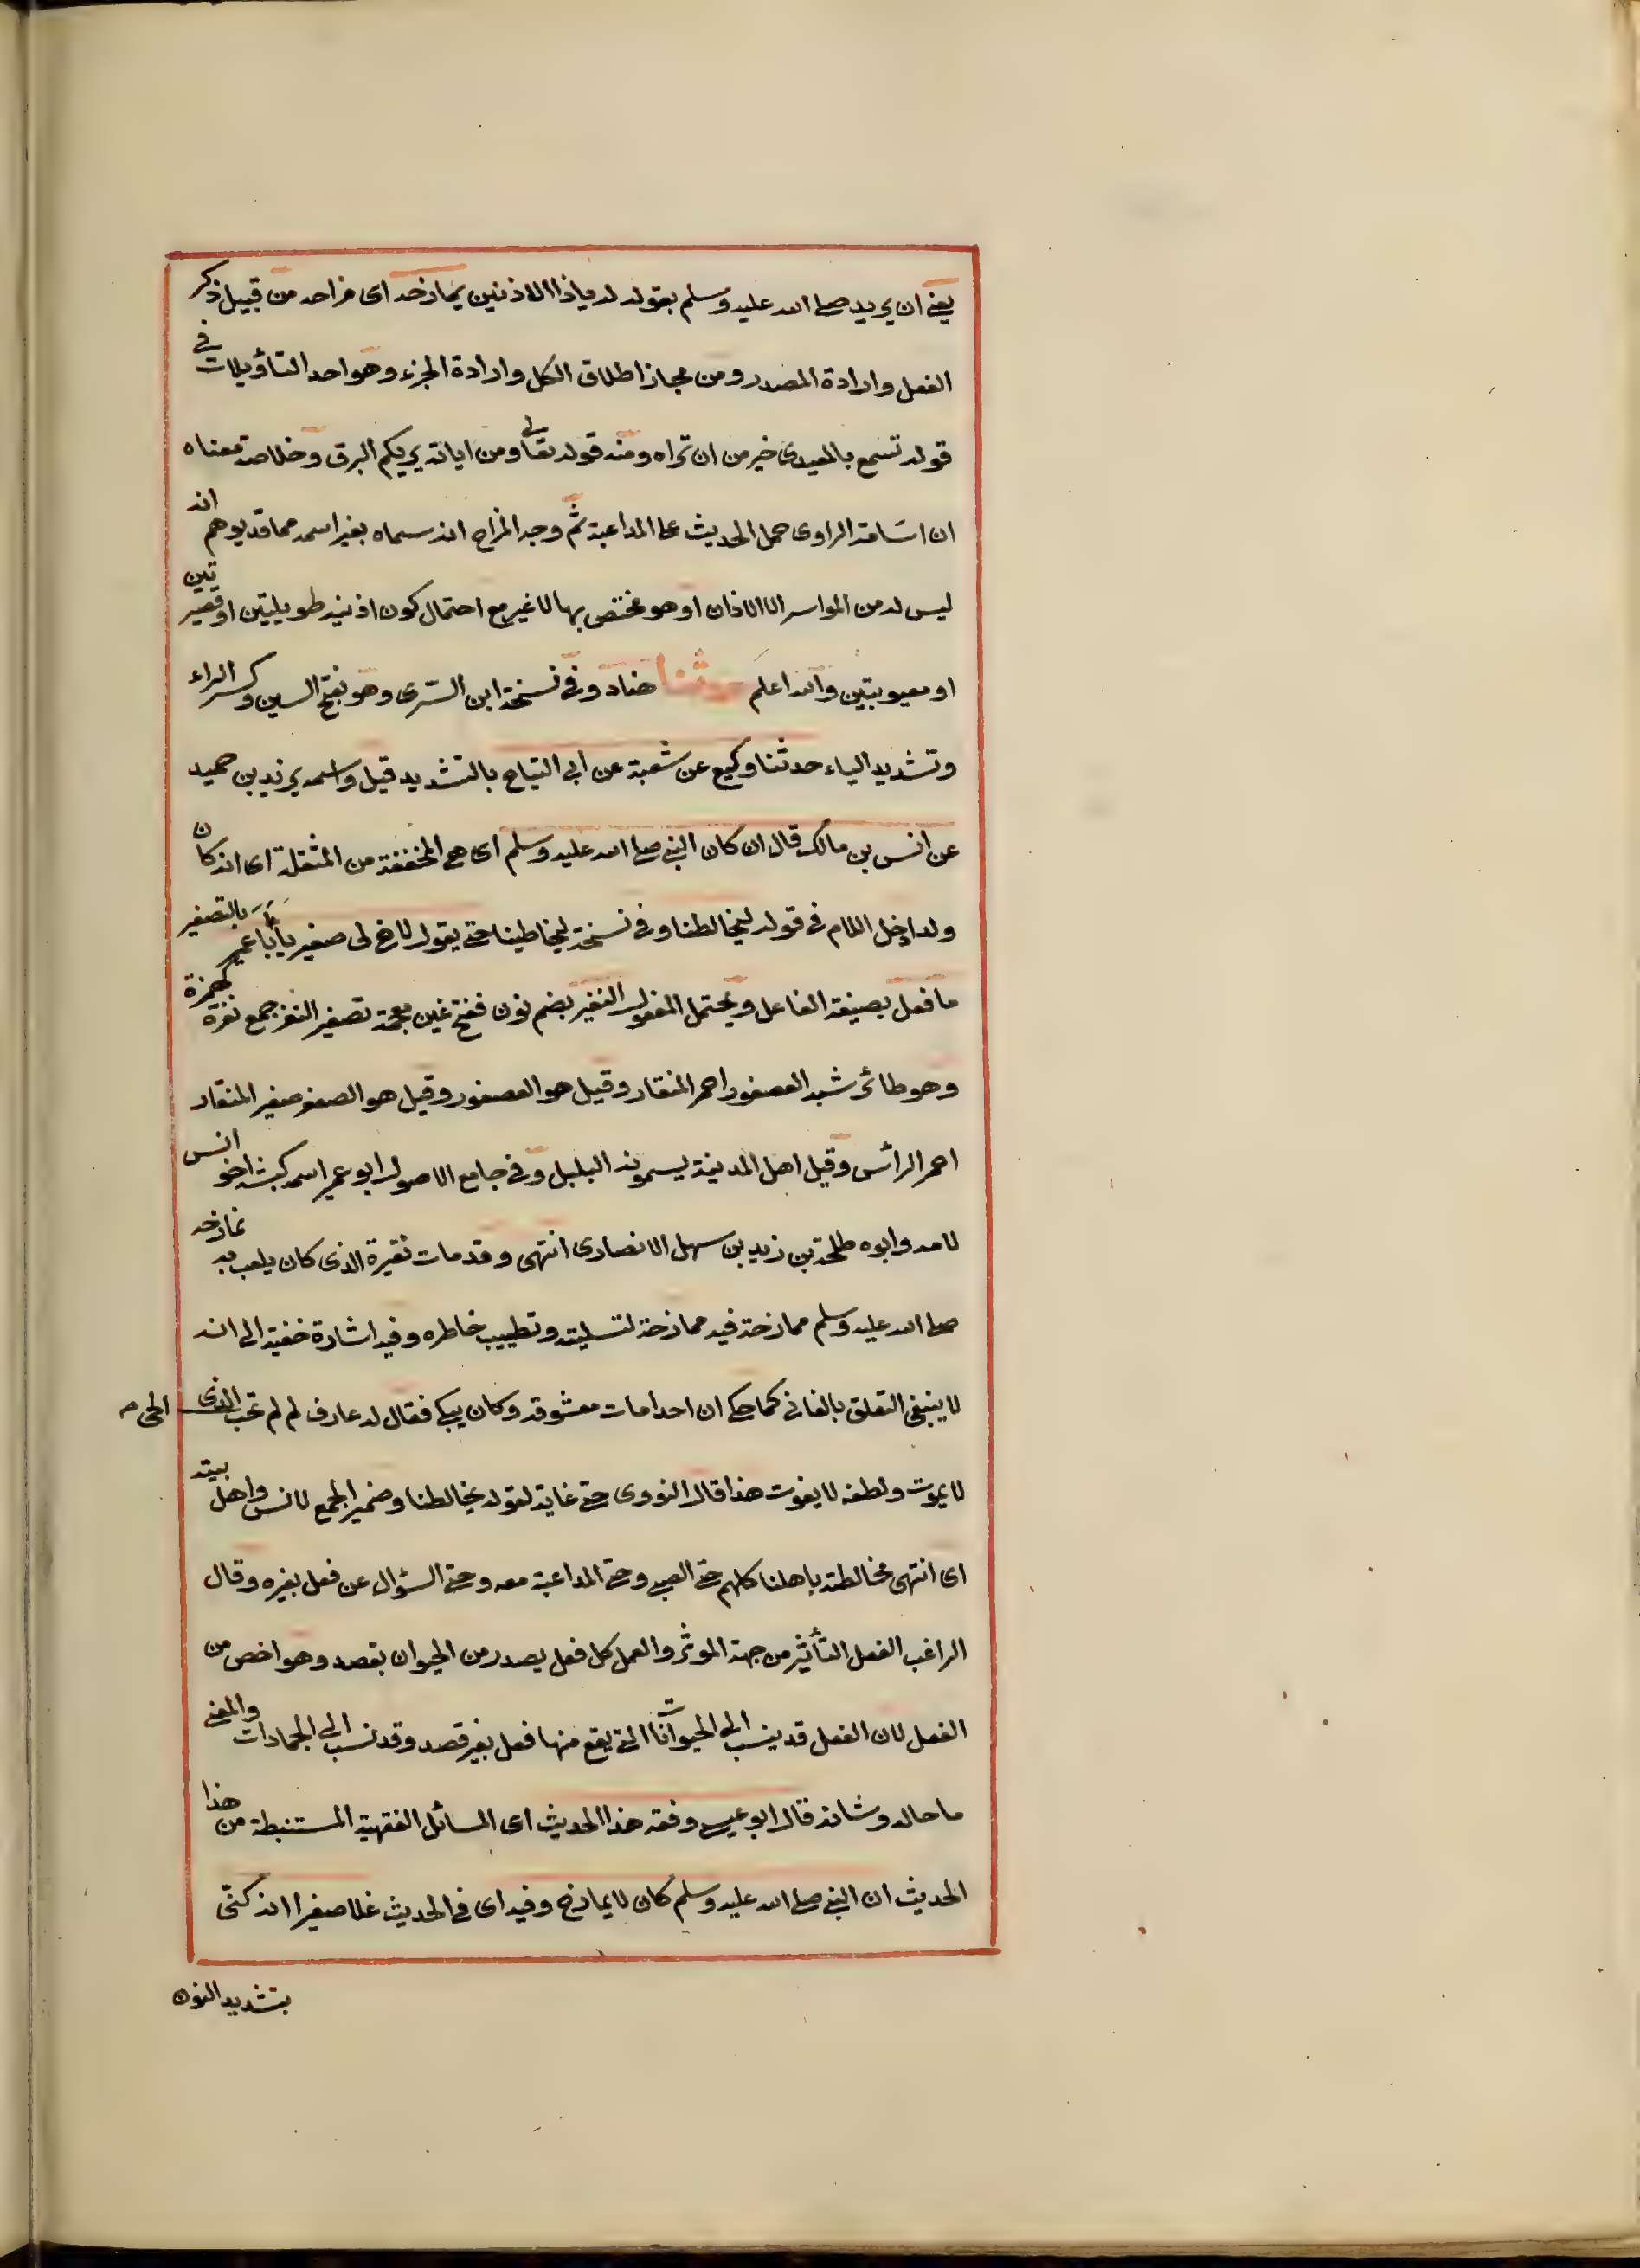 يعني ان يريد صلى الله عليه وسلم بقوله له ياذا الاذنين يمازحه اى مزاحه من قبيل ذكر
الفعل وارادة المصدر ومن مجاز اطلاق الكل وارادة الجزء وهو احد التأويلات في
قوله تسمع بالمعيدى خير من ان تراه ومنه قوله تعالى ومن اياته يريكم البرق وخلاصة معناه
ان اسامة الراوى حمل الحديث على المداعبة ثم وجه المزاح انه سماه بغير اسمه مما قد يوهم انه
ليس له من الحواس الا الاذان او هو مختص بها لا غير مع احتمال كون اذنيه طويلتين او قصيرتين
او معيوبتين والله اعلم حدثنا هناد وفي نسخة ابن السَّرى وهو بفتح السين وكسر الراء
وتشديد الياء حدثنا وكيع عن شعبة عن ابى التياح بالتشديد قيل واسمه يزيد بن حميد
عن انس بن مالك قال ان كان النبي صلى الله عليه وسلم اى هي المخففة من المثقلة اى انه كان
ولد ادخل اللام في قوله ليخالطنا وفي نسخة ليخاطبنا حتى يقول لاخ لى صغير يا أبا عمير بالتصغير
ما فعل بصيغة الفاعل ويحتمل المفعول النغير بضم نون ففتح غين معجمة تصغير النغر جمع نغرة كهمزة
وهو طائر شبه العصفور احمر المنقار وقيل هو العصفور وقيل هو الصعو صغير المنقار
احمر الرأس وقيل اهل المدينة يسمونه البلبل وفي جامع الاصول ابو عمير اسمه كبشة اخو انس
لامه وابوه طلحة بن زيد بن سهل الانصارى انتهى وقد مات نغيرة الذى كان يلعب به فمازحه
صلى الله عليه وسلم ممازحة فيه ممازحة لتسليته وتطييب خاطره وفيه اشارة خفية الى انه
لا ينبغى التعلق بالفاني كما حكي ان احدا مات معشوقه وكان يبكي فقال له عارف لم لم تحب الذى الحى م
لا يموت ولطفه لا يفوت هذا قال النووى حتى غاية لقوله يخالطنا وضمير الجمع لانس واهل بيته
اى انتهى مخالطته باهلنا كلهم حتى الصبي وحتى المداعبة معه وحتى السؤال عن فعل بغيره وقال
الراغب الفعل التأثير من جهة الموثر والعمل كل فعل يصدر من الحيوان بقصد وهو اخص من
الفعل لان الفعل قد ينسب الى الحيوانات التي يقع منها فعل بغير قصد وقد نسب الى الجمادات والمعنى
ما حاله وشانه قال ابو عيسى وفقه هذا الحديث اى المسائل الفقهية المستنبطة من هذا
الحديث ان النبي صلى الله عليه وسلم كان لا يمازح وفيه اى في الحديث غلا صغيرا انه كنّى
بتشديد النون